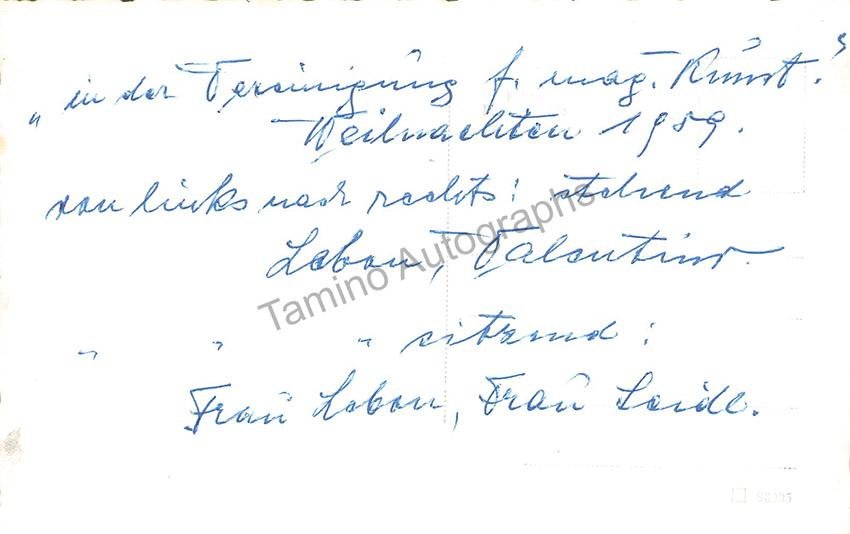 „in der Vereinigung f. mag. Kunst."
Weihnachten 1959.
von links nach rechts: stehend
Lebon, Valentino.
" " " sitzend:
Frau Lebon, Frau Seidl.
Tamino Autographs